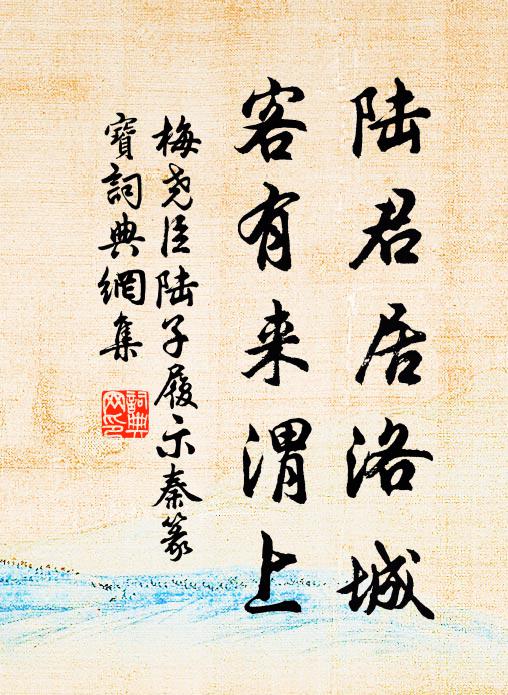 陆君居洛城
客有来渭上
梅尧臣陆子履示秦篆
寶詞典網集
詞典
网印